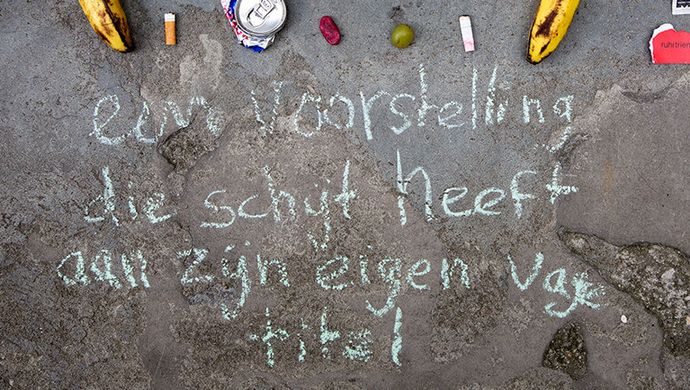 ruhrtrien
een voorstelling
die schijt heeft
aan zijn eigen vage
titel